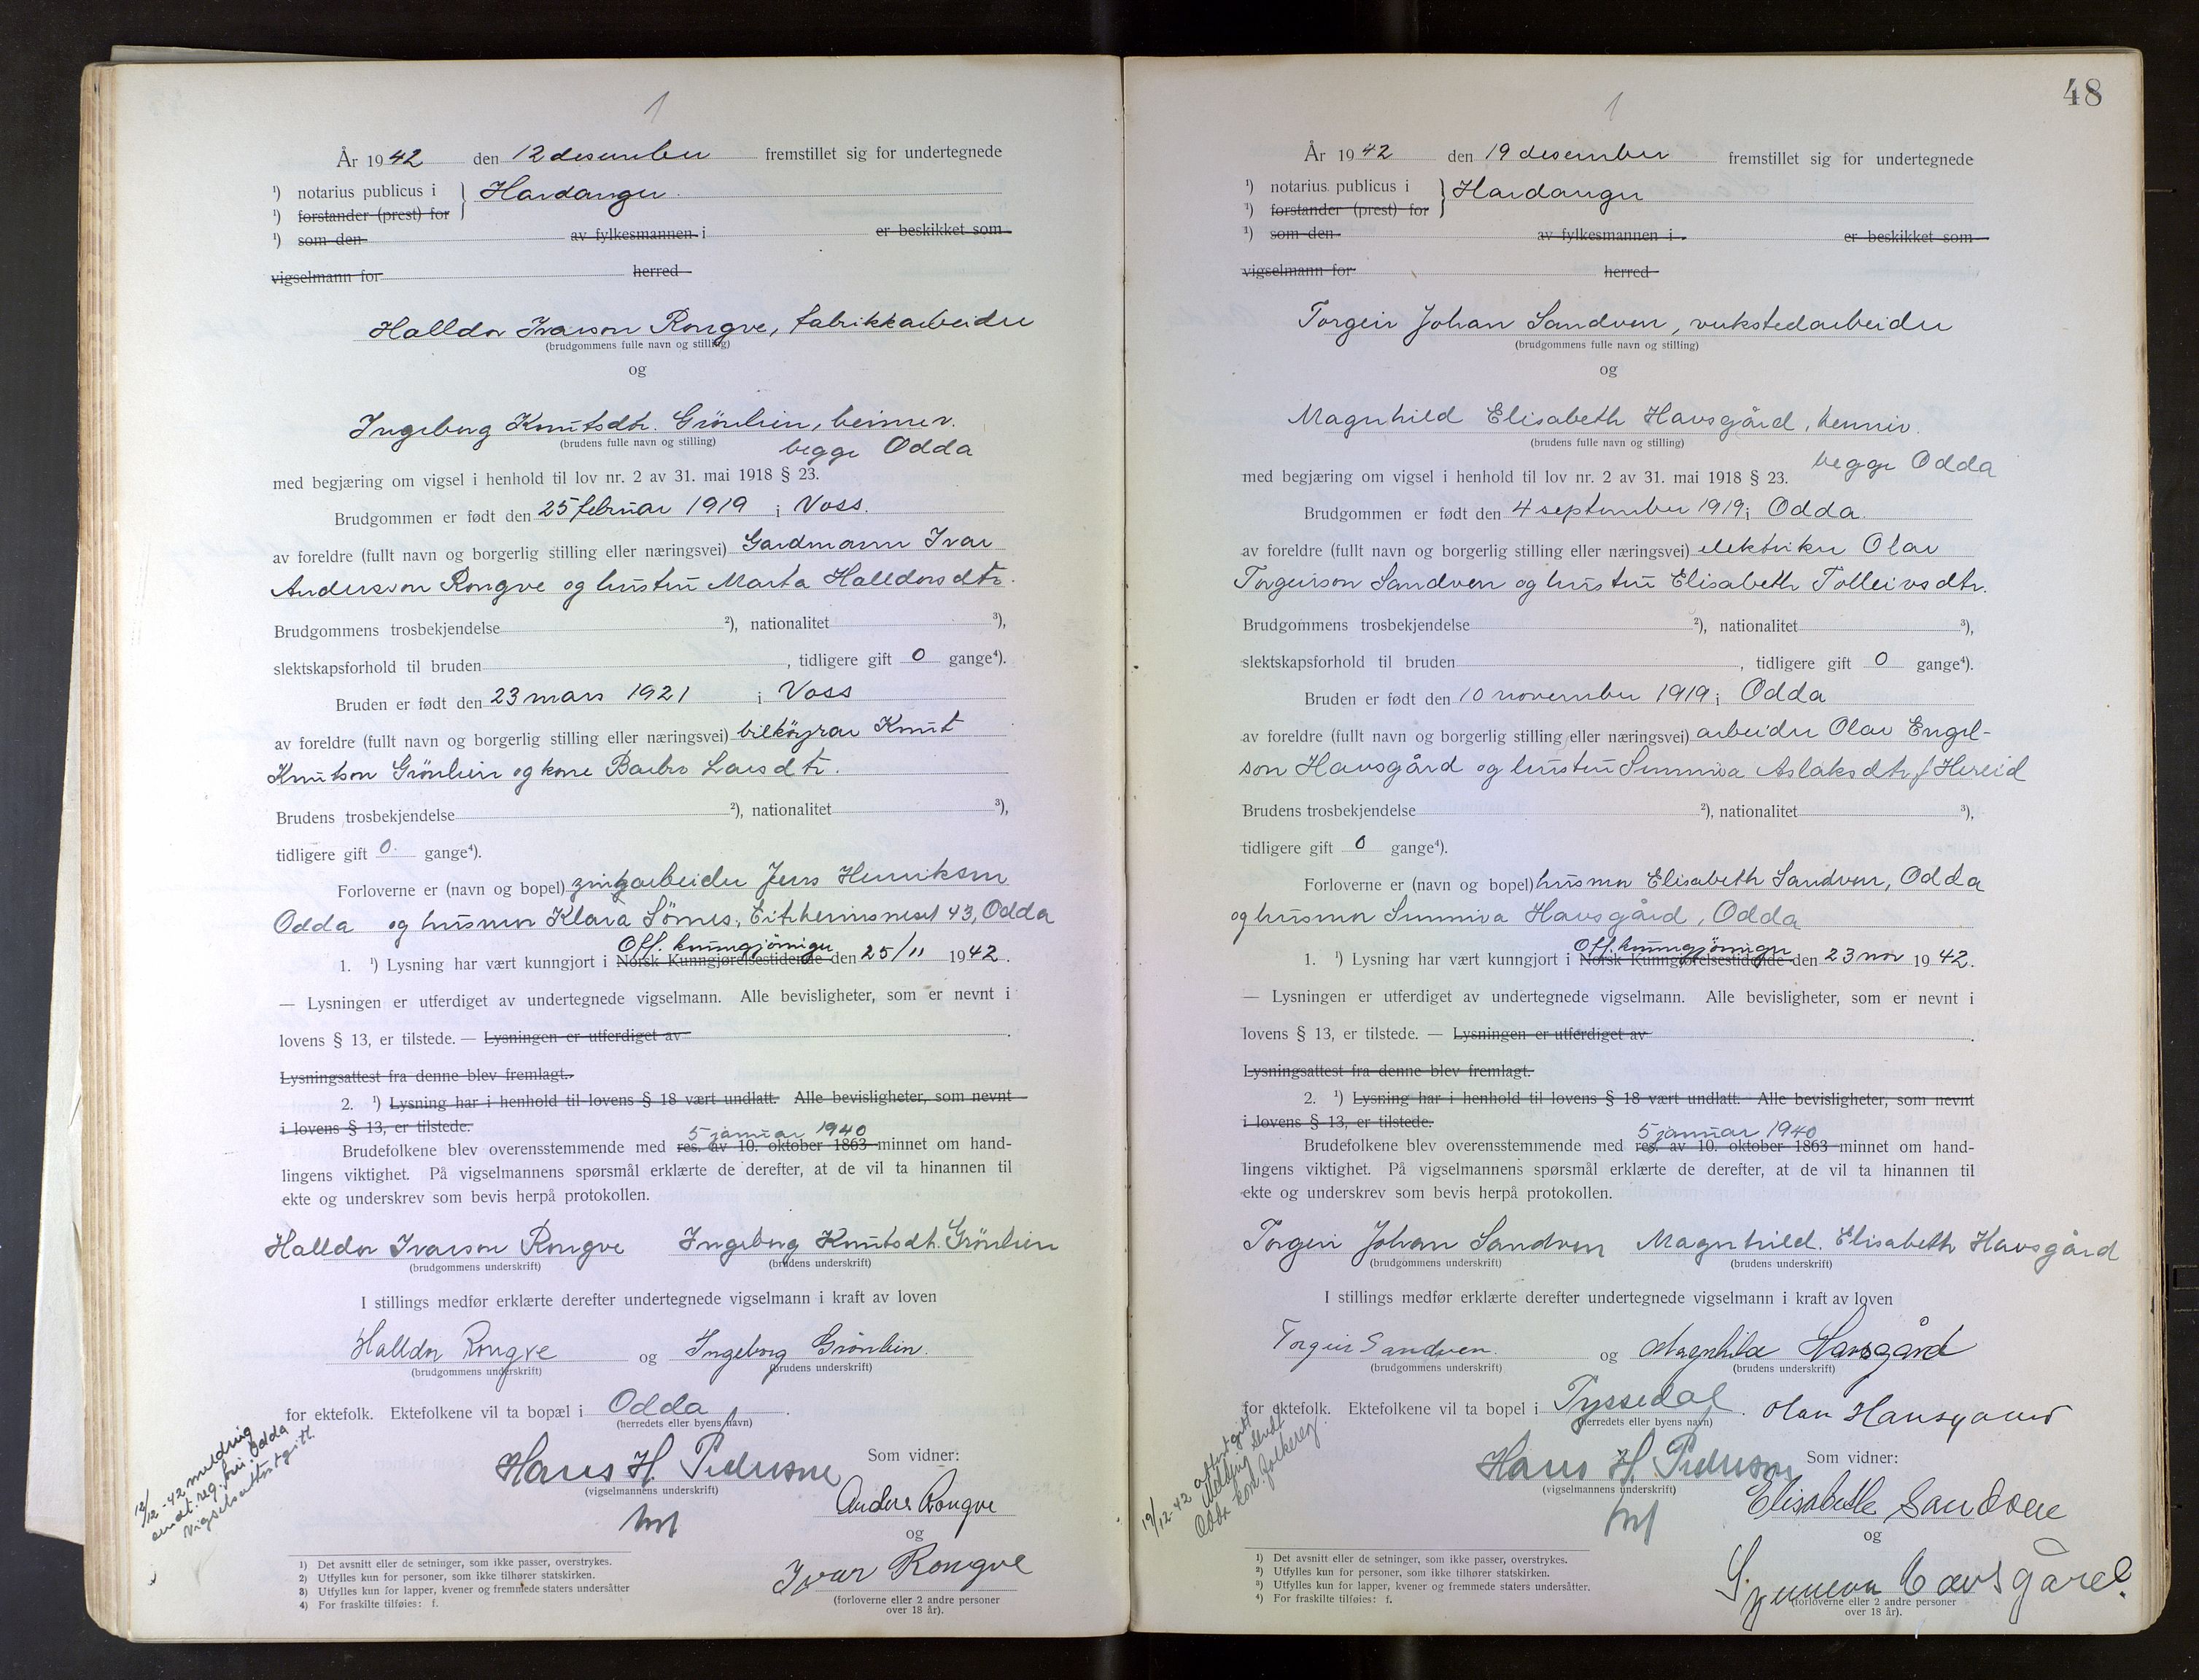 1
År 1942 den 12 desember fremstillet sig for undertegnede
¹) notarius publicus i } Hardanger.
¹) forstander (prest) for
¹) som den av fylkesmannen i er beskikket som
vigselmann for herred
Halldor Ivarson Rongve, fabrikkarbeider
(brudgommens fulle navn og stilling)
og
Ingeborg Knutsdtr. Grönlien, heimev.
(brudens fulle navn og stilling)
begge Odda
med begjæring om vigsel i henhold til lov nr. 2 av 31. mai 1918 § 23.
Brudgommen er født den 25 februar 1919 i Voss.
av foreldre (fullt navn og borgerlig stilling eller næringsvei) Gardmann Ivar
Andersson Rongve og hustru Marta Halldorsdtr.
Brudgommens trosbekjendelse ²), nationalitet ³),
slektskapsforhold til bruden , tidligere gift 0 gange⁴).
Bruden er født den 23 mars 1921 i Voss
av foreldre (fullt navn og borgerlig stilling eller næringsvei) bilköyrar Knut
Knutson Grönlien og kone Barbro Larsdtr.
Brudens trosbekjendelse ²), nationalitet ³),
tidligere gift 0. gange⁴).
Forloverne er (navn og bopel) zinkarbeider Jens Henriksen
Odda og husmor Klara Sömes, Eitrheimsneset 43, Odda
Off. kunngjöringer
1. ¹) Lysning har vært kunngjort i Norsk Kunngjørelsestidende den 25/11 1942.
— Lysningen er utferdiget av undertegnede vigselmann. Alle bevisligheter, som er nevnt i
lovens § 13, er tilstede. — Lysningen er utferdiget av .
Lysningsattest fra denne blev fremlagt.
2. ¹) Lysning har i henhold til lovens § 18 vært undlatt. Alle bevisligheter, som nevnt
i lovens § 13, er tilstede.
5 januar 1940
Brudefolkene blev overensstemmende med res. av 10. oktober 1863 minnet om hand-
lingens viktighet. På vigselmannens spørsmål erklærte de derefter, at de vil ta hinannen til
ekte og underskrev som bevis herpå protokollen.
Halldor Ivarson Rongve Ingeborg Knutsdtr. Grönlien
(brudgommens underskrift) (brudens underskrift)
I stillings medfør erklærte derefter undertegnede vigselmann i kraft av loven
Halldor Rongve og Ingeborg Grönlien.
(brudgommens underskrift) (brudens underskrift)
for ektefolk. Ektefolkene vil ta bopæl i Odda .
(herredets eller byens navn)
12/12-42 melding
sendt. reg.för. Odda
Vigselsattest gitt.
Hans H. Pedersen Som vidner:
(vigselmannens underskrift)
Anders Rongve
og
Ivar Rongve
(forloverne eller 2 andre personer
over 18 år).
1) Det avsnitt eller de setninger, som ikke passer, overstrykes.
2) Utfylles kun for personer, som ikke tilhører statskirken.
3) Utfylles kun for lapper, kvener og fremmede staters undersåtter
4) For fraskilte tilføies: f.
48
1
År 1942 den 19 desember fremstillet sig for undertegnede
¹) notarius publicus i } Hardanger
¹) forstander (prest) for
¹) som den av fylkesmannen i er beskikket som
vigselmann for herred
Torgeir Johan Sandven, verkstedarbeider
(brudgommens fulle navn og stilling)
og
Magnhild Elisabeth Havsgård, hennev.
(brudens fulle navn og stilling)
begge Odda
med begjæring om vigsel i henhold til lov nr. 2 av 31. mai 1918 § 23.
Brudgommen er født den 4 september 1919 i Odda.
av foreldre (fullt navn og borgerlig stilling eller næringsvei) elektriker Olav
Torgeirson Sandven og hustru Elisabeth Tolleivsdtr.
Brudgommens trosbekjendelse ²), nationalitet ³),
slektskapsforhold til bruden , tidligere gift 0 gange⁴).
Bruden er født den 10 november 1919 i Odda
av foreldre (fullt navn og borgerlig stilling eller næringsvei) arbeider Olav Engel-
son Havsgård og hustru Sunniva Aslaksdtr f Hereid
Brudens trosbekjendelse ²), nationalitet ³),
tidligere gift 0 gange⁴).
Forloverne er (navn og bopel) husmor Elisabeth Sandven, Odda
og husmor Sunniva Havsgård, Odda
Off. kunngjöringer
1. ¹) Lysning har vært kunngjort i Norsk Kunngjørelsestidende den 23 nov 1942.
— Lysningen er utferdiget av undertegnede vigselmann. Alle bevisligheter, som er nevnt i
lovens § 13, er tilstede. — Lysningen er utferdiget av .
Lysningsattest fra denne blev fremlagt.
2. ¹) Lysning har i henhold til lovens § 18 vært undlatt. Alle bevisligheter, som nevnt
i lovens § 13, er tilstede.
5 januar 1940
Brudefolkene blev overensstemmende med res. av 10. oktober 1863 minnet om hand-
lingens viktighet. På vigselmannens spørsmål erklærte de derefter, at de vil ta hinannen til
ekte og underskrev som bevis herpå protokollen.
Torgeir Johan Sandven Magnhild. Elisabeth Havsgård
(brudgommens underskrift) (brudens underskrift)
I stillings medfør erklærte derefter undertegnede vigselmann i kraft av loven
Torgeir Sandven. og Magnhild Havsgård
(brudgommens underskrift) (brudens underskrift)
for ektefolk. Ektefolkene vil ta bopel i Tyssedal . Olav Havsgård
(herredets eller byens navn)
19/12-42 attest gitt
Melding sendt
Odda kom. folkereg.
Hans H. Pedersen Som vidner:
(vigselmannens underskrift)
Elisabeth Sandven
og
Synneva Havsgård.
(forloverne eller 2 andre personer
over 18 år).
1) Det avsnitt eller de setninger, som ikke passer, overstrykes.
2) Utfylles kun for personer, som ikke tilhører statskirken.
3) Utfylles kun for lapper, kvener og fremmede staters undersåtter.
4) For fraskilte tilføies: f.